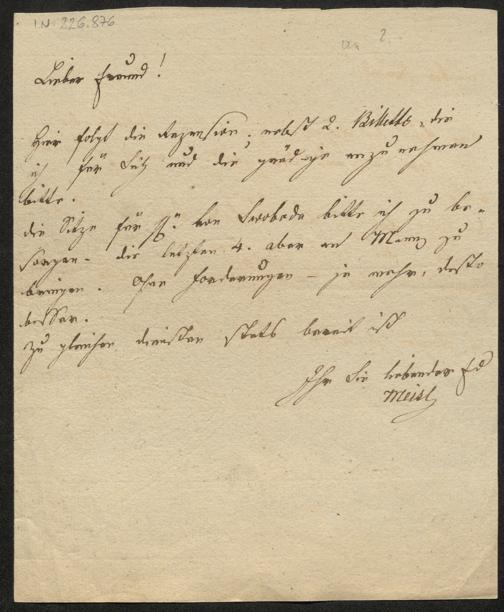 I.N. 226.876
2.
Lieber Freund!
Hier folgt die Rezension, nebst 2. Billetts, die
ich für Sie und die gnädige anzunehmen
bitte.
die Sitze für von Swoboda bitte ich zu be-
sorgen. die letzten 4. aber an zu
bringen. Ohne Forderungen – je mehr, desto
besser.
Zu gleichen Diensten stets bereit ist
Ihr Sie liebender Fd
Meisl